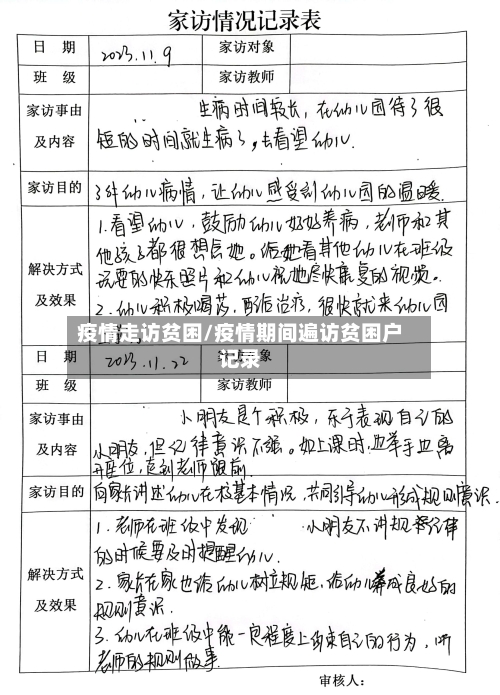 家访情况记录表
日 期 2023.11.9 家访对象
班 级 家访教师
家访事由及内容
生病时间较长，在幼儿园待了很
短的时间就生病了，去看望幼儿.
家访目的 了解幼儿病情，让幼儿感受到幼儿园的温暖.
解决方式及效果
1.看望幼儿，鼓励幼儿好好养病，老师和其
他孩子都很想念她。给她看其他幼儿在班级
玩耍的快乐照片和幼儿祝她尽快康复的视频。
2.幼儿积极喝药，配合治疗，很快就来幼儿园
疫情走访贫困/疫情期间遍访贫困户
记录
日 期 2023.11.22 家访对象
班 级 家访教师
家访事由及内容
小朋友是个积极，乐于表现自己的
小朋友，但纪律意识不强。如上课时，边举手边离
开座位，直到老师跟前.
家访目的 向家长讲述幼儿在校基本情况，共同引导幼儿形成规则意识.
解决方式及效果
1.老师在班级中发现 小朋友不讲规 纪律
的时候要及时提醒幼儿.
2.家长在家也给幼儿树立规矩，给幼儿养成良好的
规则意识.
3.幼儿在班级中能一定程度上约束自己的行为，听
老师的规则做事.
审核人：